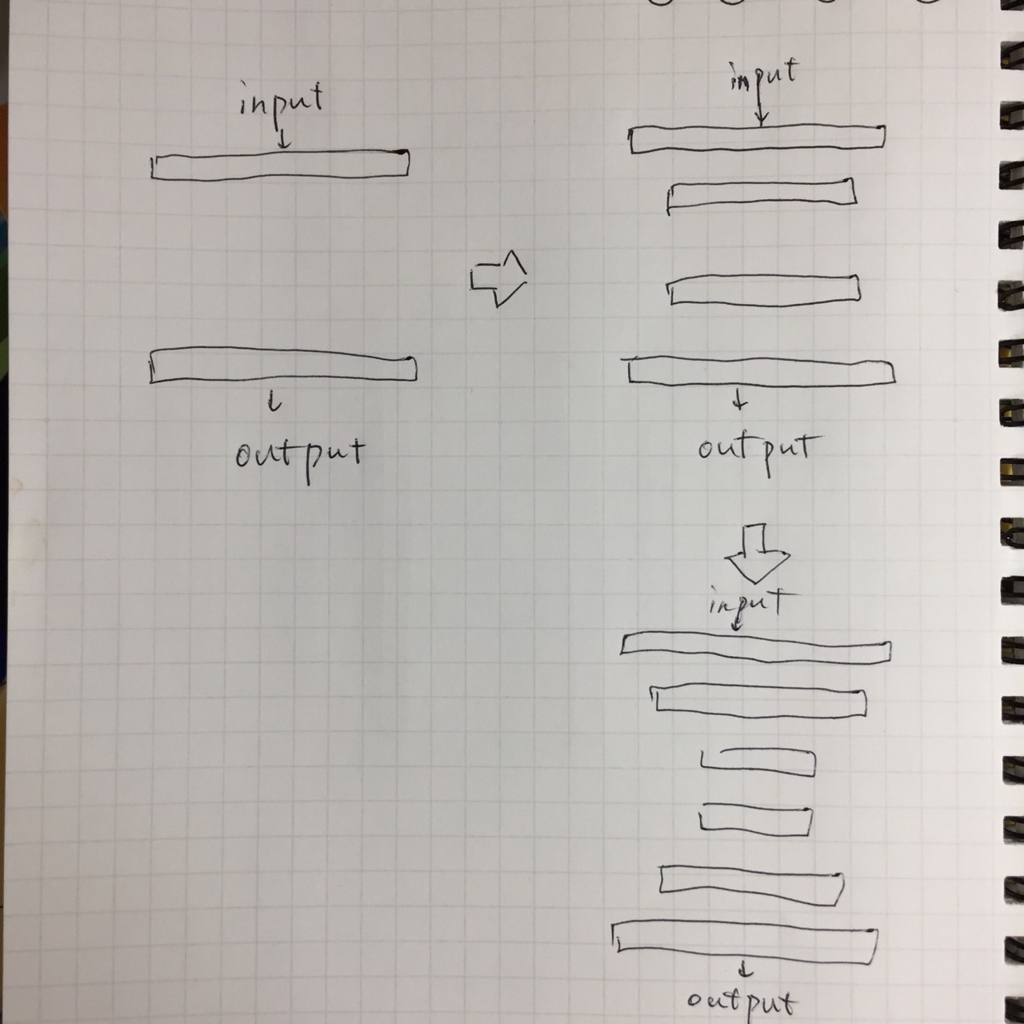 input
output
input
output
input
output